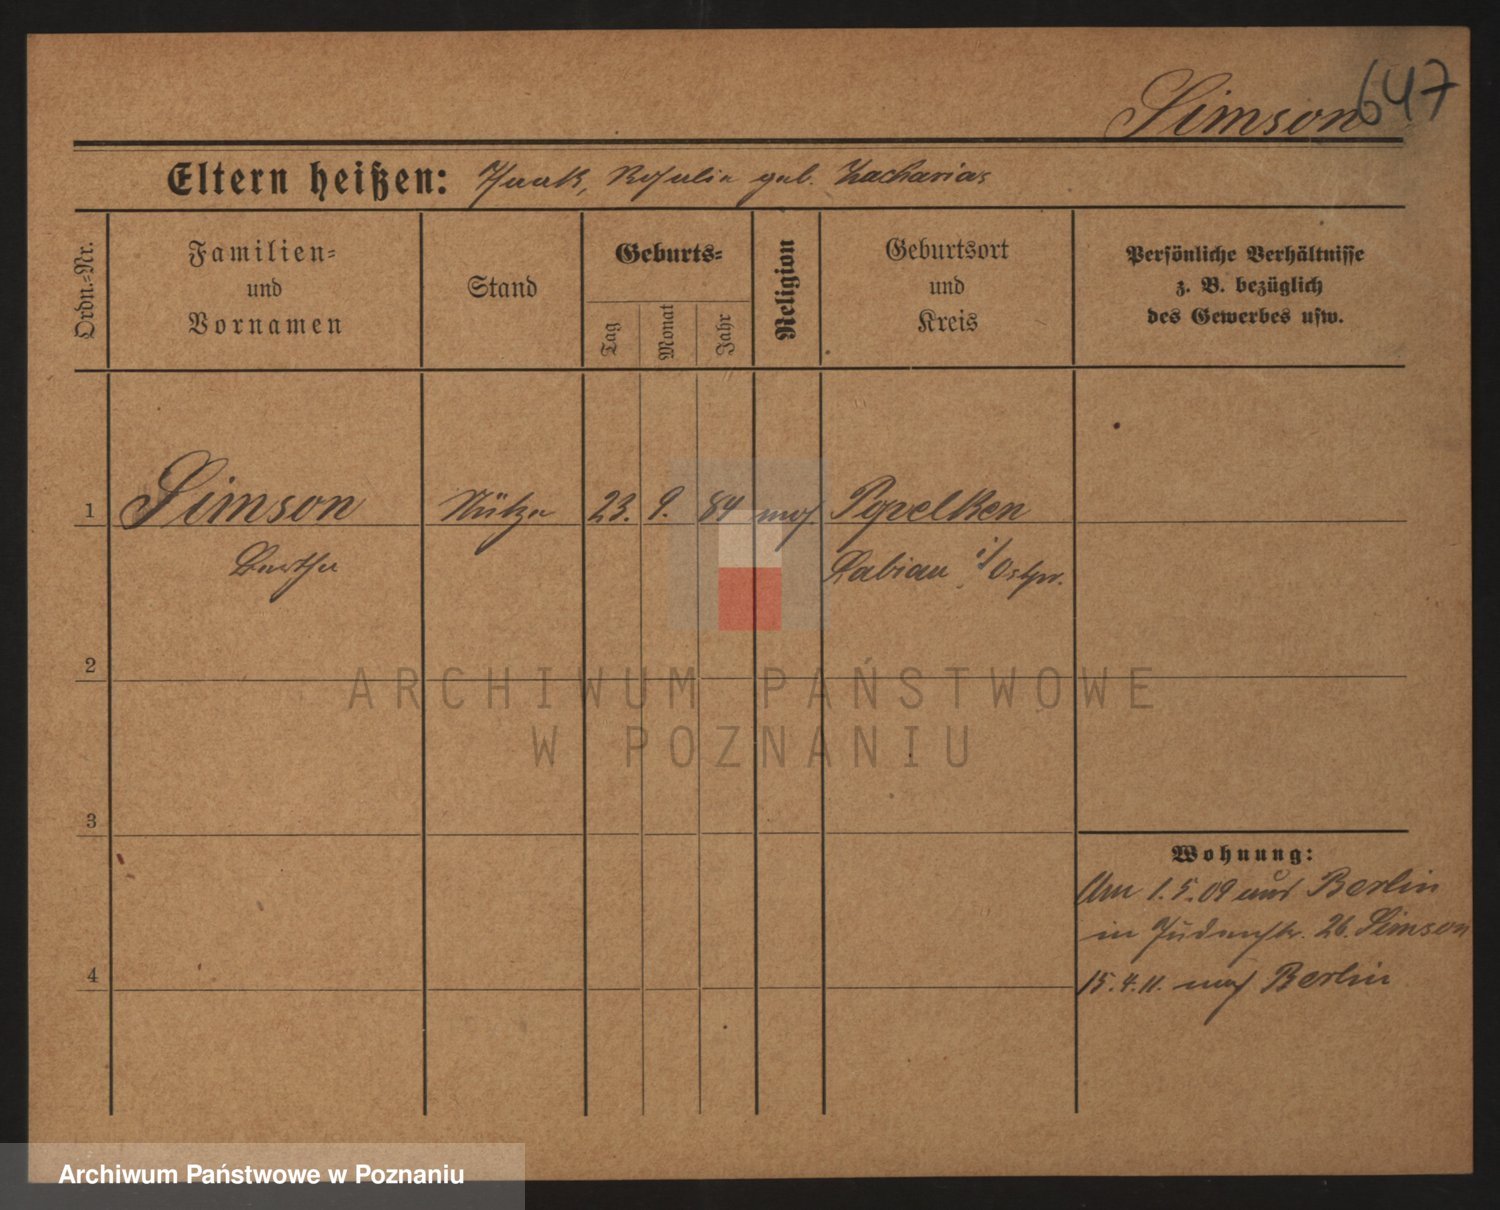 647
Simson
Eltern heißen: Isaak, Rosalie geb. Zacharias
Ordn.-Nr.
Familien-
und
Vornamen
Stand
Geburts-
Tag
Monat
Jahr
Religion
Geburtsort
und
Kreis
Persönliche Verhältnisse
z. B. bezüglich
des Gewerbes usw.
1 Simson Stütze 23. 9. 84 mos Popelken
Bertha Labiau i/Ostpr.
2
3
4
ARCHIWUM PAŃSTWOWE
W POZNANIU
Wohnung:
Am 1.5.09 aus Berlin
in Judenstr. 26. Simson
15.4.11. nach Berlin
Archiwum Państwowe w Poznaniu